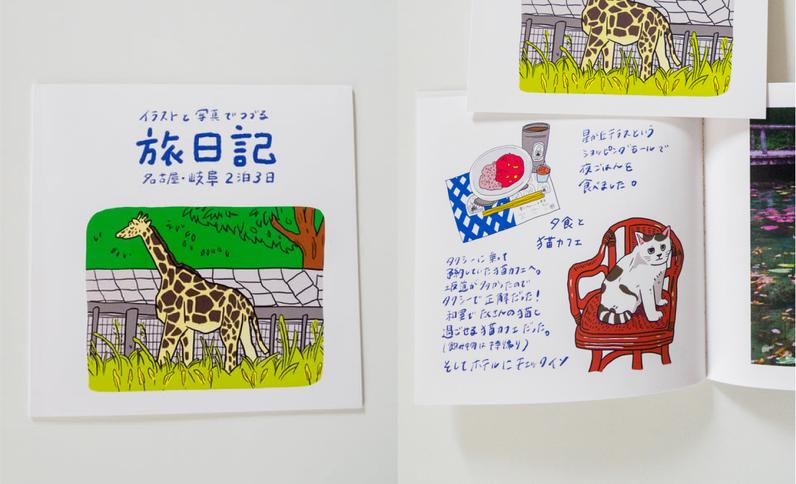 イラストと写真でつづる
旅日記
名古屋・岐阜 2泊3日
星が丘テラスという
ショッピングモールで
夜ごはんを
食べました。
夕食と
猫カフェ
タクシーに乗って
予約していた猫カフェへ。
坂道が多かったので
タクシーで正解だった!
和室でたくさんの猫と
過ごせる猫カフェだった。
そしてホテルにチェックイン